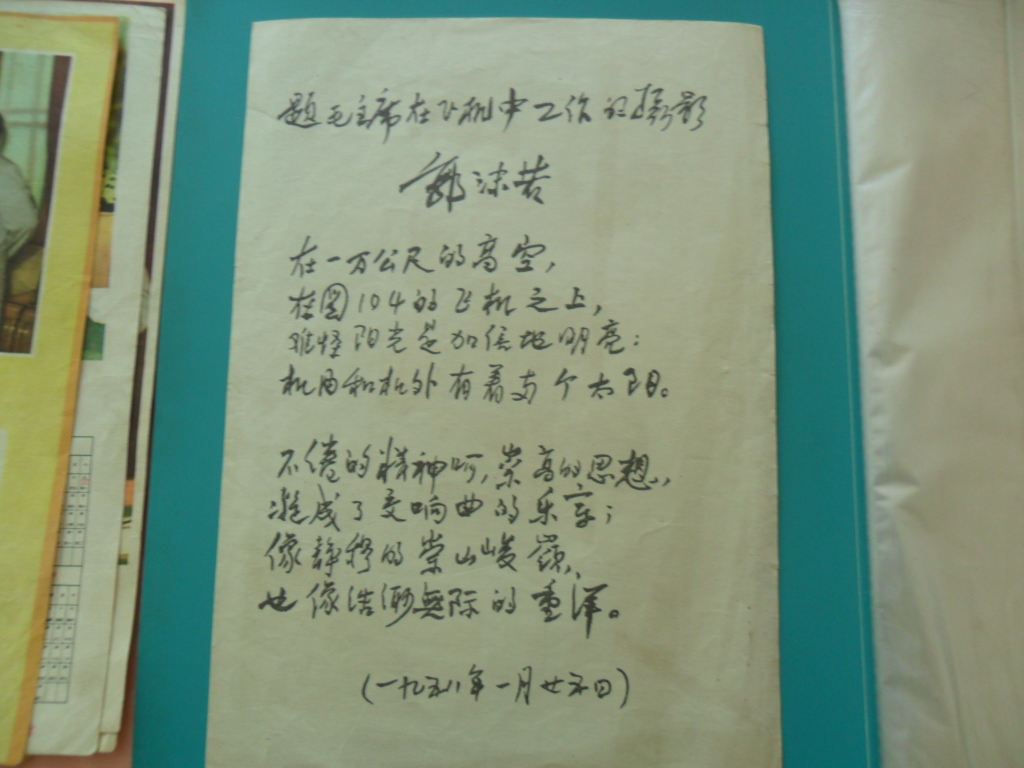 题毛主席在飞机中工作的摄影
郭沫若
在一万公尺的高空，
在图104的飞机之上，
难怪阳光是加倍地明亮：
机内和机外有着两个太阳。
不倦的精神呵，崇高的思想，
凝成了交响曲的乐章；
像静穆的崇山峻嶺，
也像浩渺無际的重洋。
（一九五八年一月廿五日）